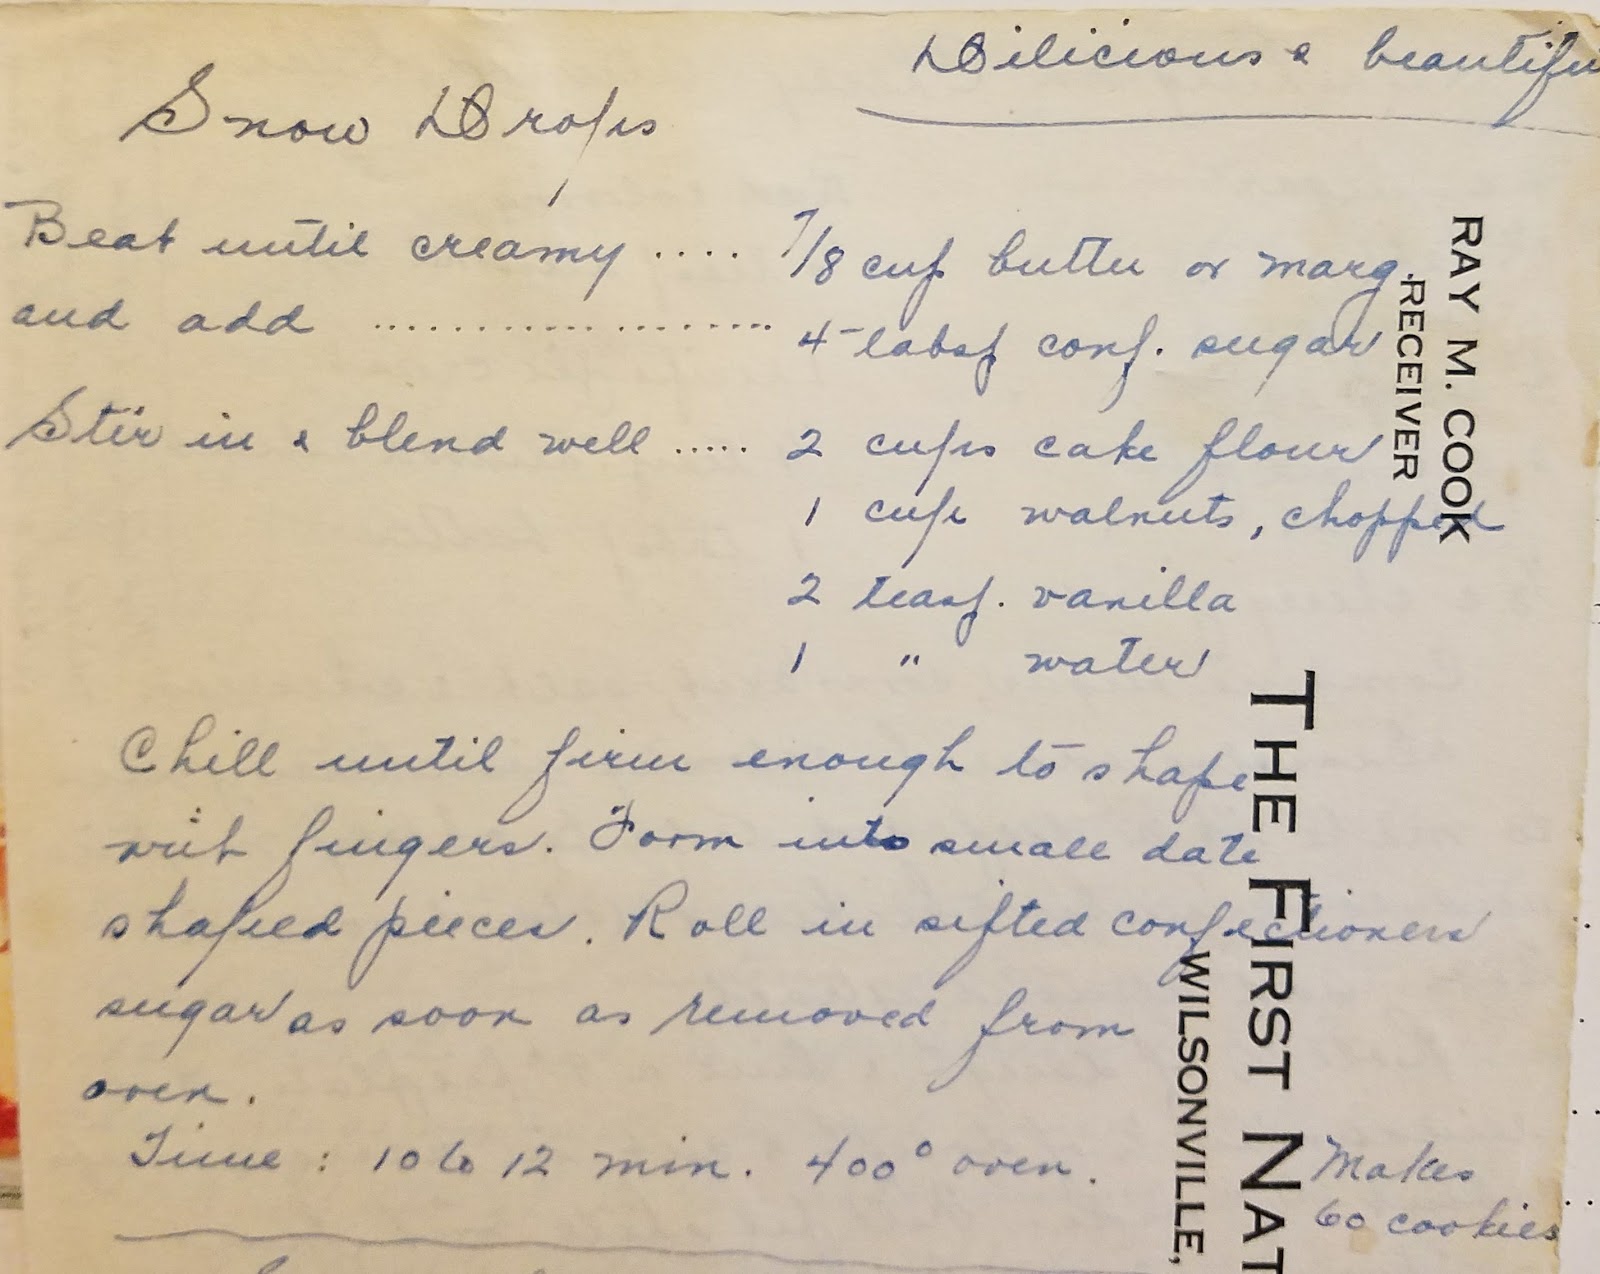 Dilicious & beautifu
Snow Drops
Beat until creamy .... 7/8 cup butter or marg.
and add .................... 4 - tabsp conf. sugar
Stir in & blend well ..... 2 cups cake flour
1 cup walnuts, chopped
2 teasp. vanilla
1 " water
Chill until firm enough to shape
with fingers. Form into small date
shaped pieces. Roll in sifted confectioners
sugar as soon as removed from
oven.
Time : 10 to 12 min. 400° oven.
Makes
60 cookies
RAY M. COOK
RECEIVER
THE FIRST NAT
WILSONVILLE,